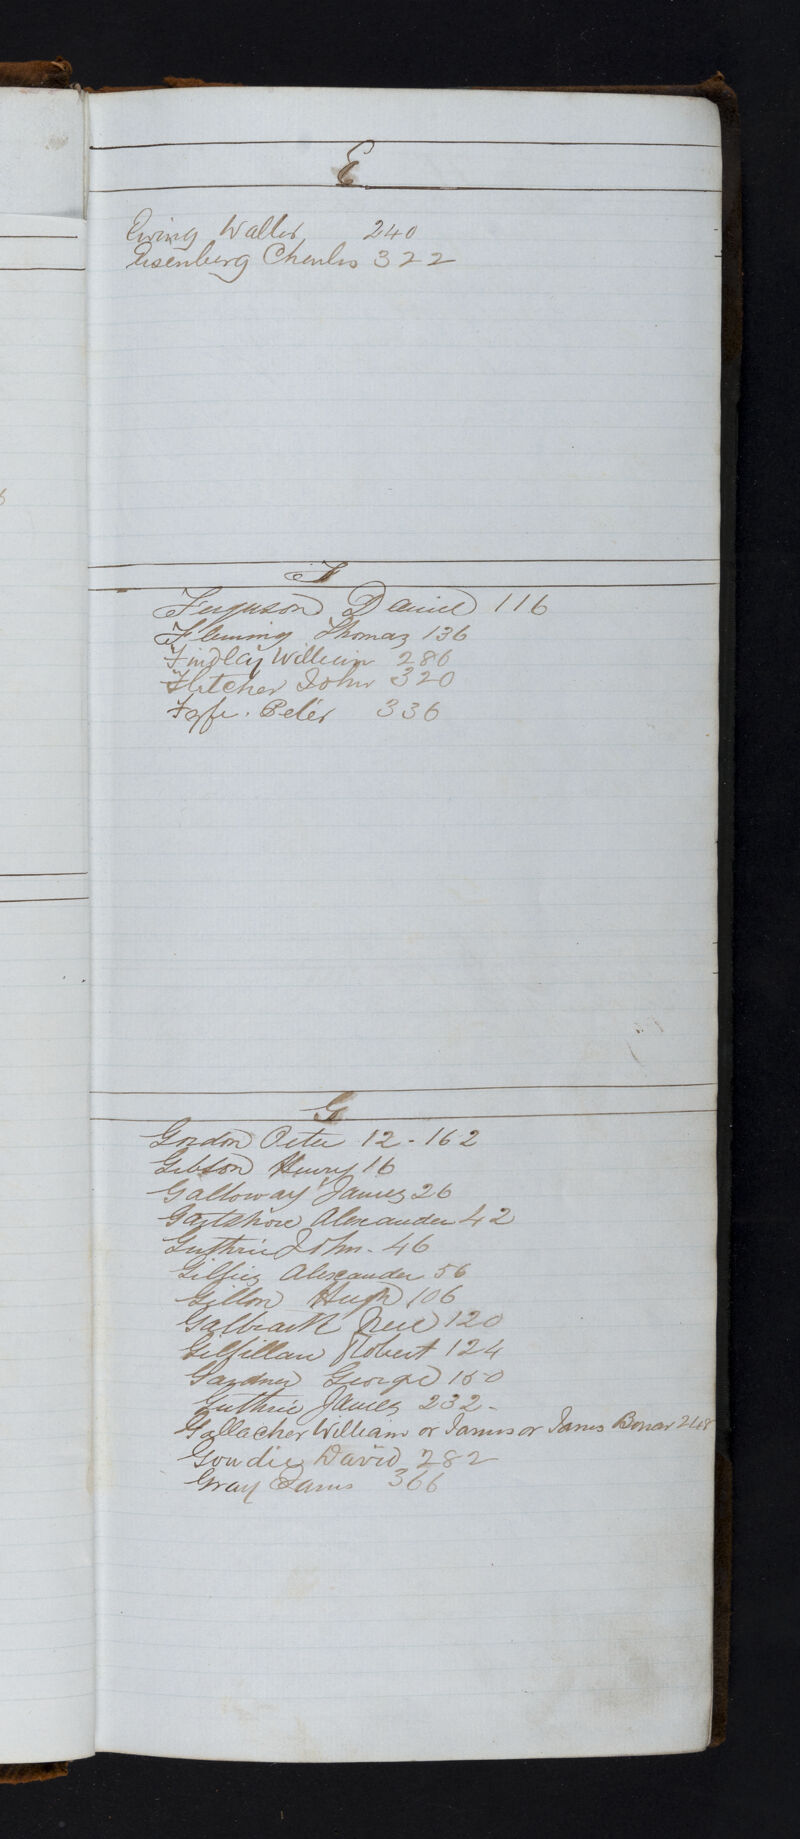 E
Ewing Walter 240
Eisenberg Charles 322
F
Ferguson Daniel 116
Fleming Thomas 136
Findlay William 286
Fletcher John 320
Fyfe. Peter 336
G
Gordon Peter 12-162
Gibson Henry 16
Galloway James 26
Gartshore Alexander 42
Guthrie John. 46
Gilfiez Alexander 56
Gillon Hugh 106
Galbraith Neil 120
Gilfillan Robert 124
Gardner George 150
Guthrie James 232-
Gallacher William or James or James Bonar 248
Goudie David 282
Gray James 366